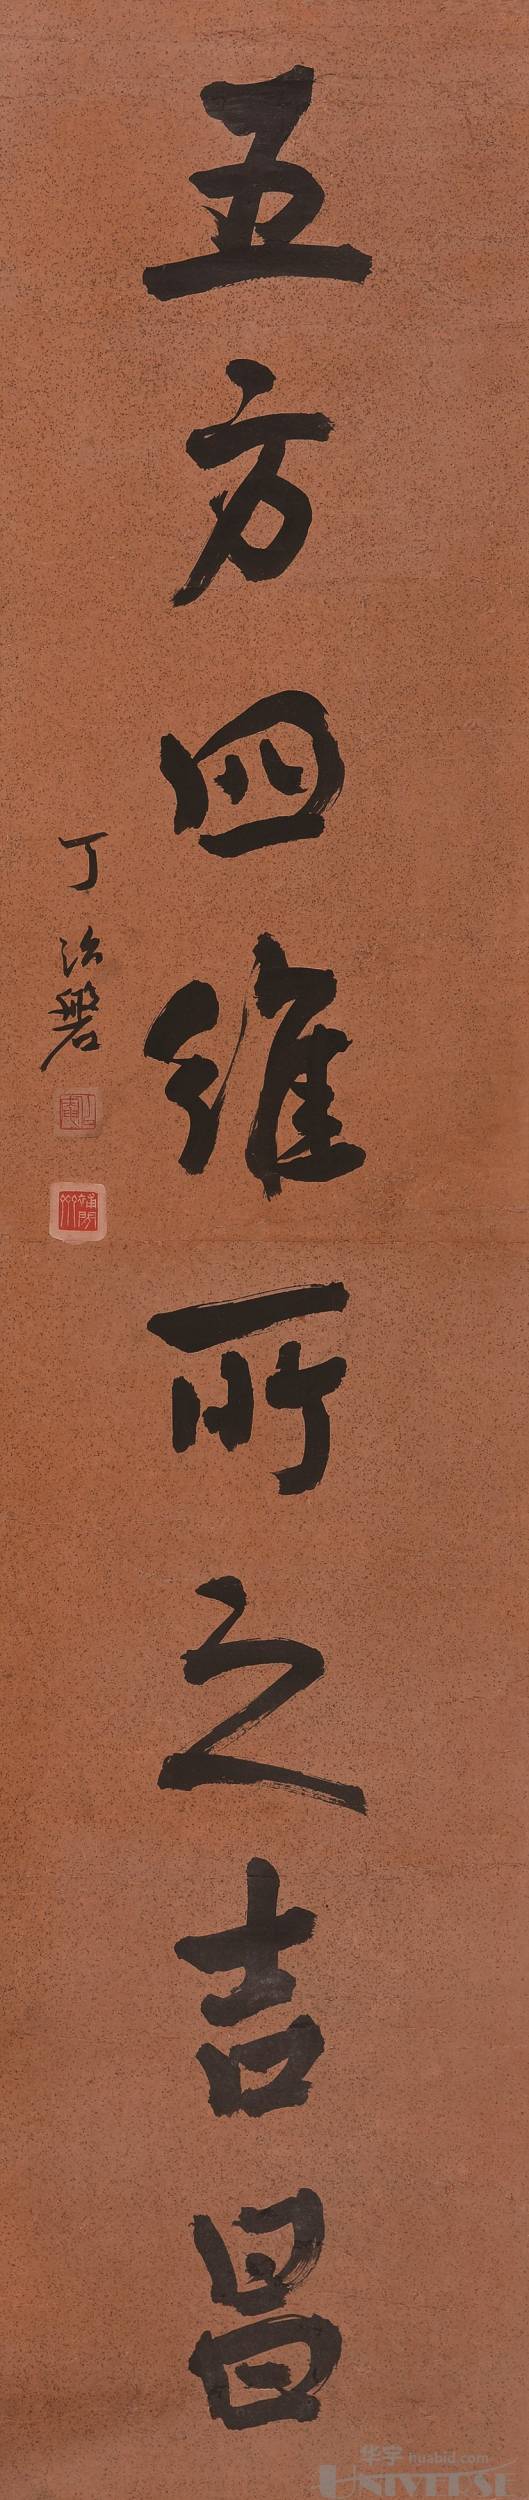 五方四維所之吉昌
丁治磐
华宇 huabid.com
UNIVERSE